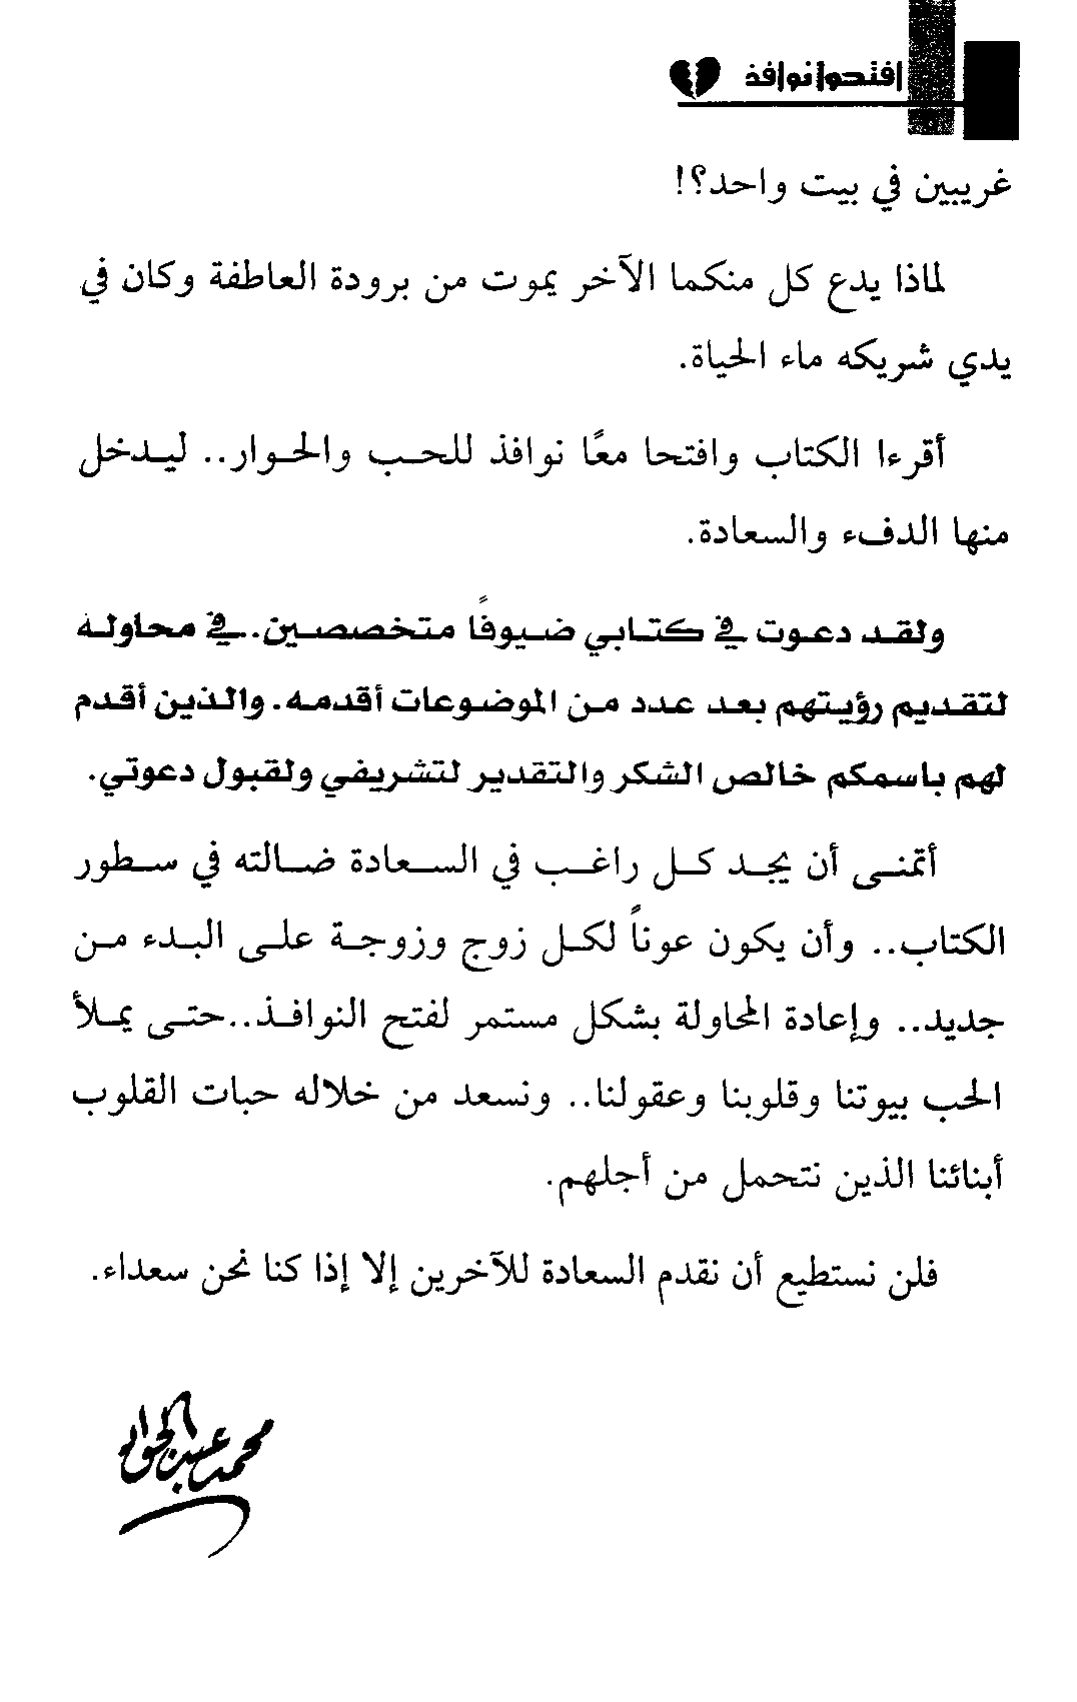 افتحوا نوافذ
غريبين في بيت واحد؟!
لماذا يدع كل منكما الآخر يموت من برودة العاطفة وكان في
يدي شريكه ماء الحياة.
أقرءا الكتاب وافتحا معًا نوافذ للحب والحوار.. ليدخل
منها الدفء والسعادة.
ولقد دعوت في كتابي ضيوفًا متخصصين.. في محاولة
لتقديم رؤيتهم بعد عدد من الموضوعات أقدمه. والذين أقدم
لهم باسمكم خالص الشكر والتقدير لتشريفي ولقبول دعوتي.
أتمنى أن يجد كل راغب في السعادة ضالته في سطور
الكتاب.. وأن يكون عوناً لكل زوج وزوجة على البدء من
جديد.. وإعادة المحاولة بشكل مستمر لفتح النوافذ..حتى يملأ
الحب بيوتنا وقلوبنا وعقولنا.. ونسعد من خلاله حبات القلوب
أبنائنا الذين نتحمل من أجلهم.
فلن نستطيع أن نقدم السعادة للآخرين إلا إذا كنا نحن سعداء.
محمد عبد الجواد